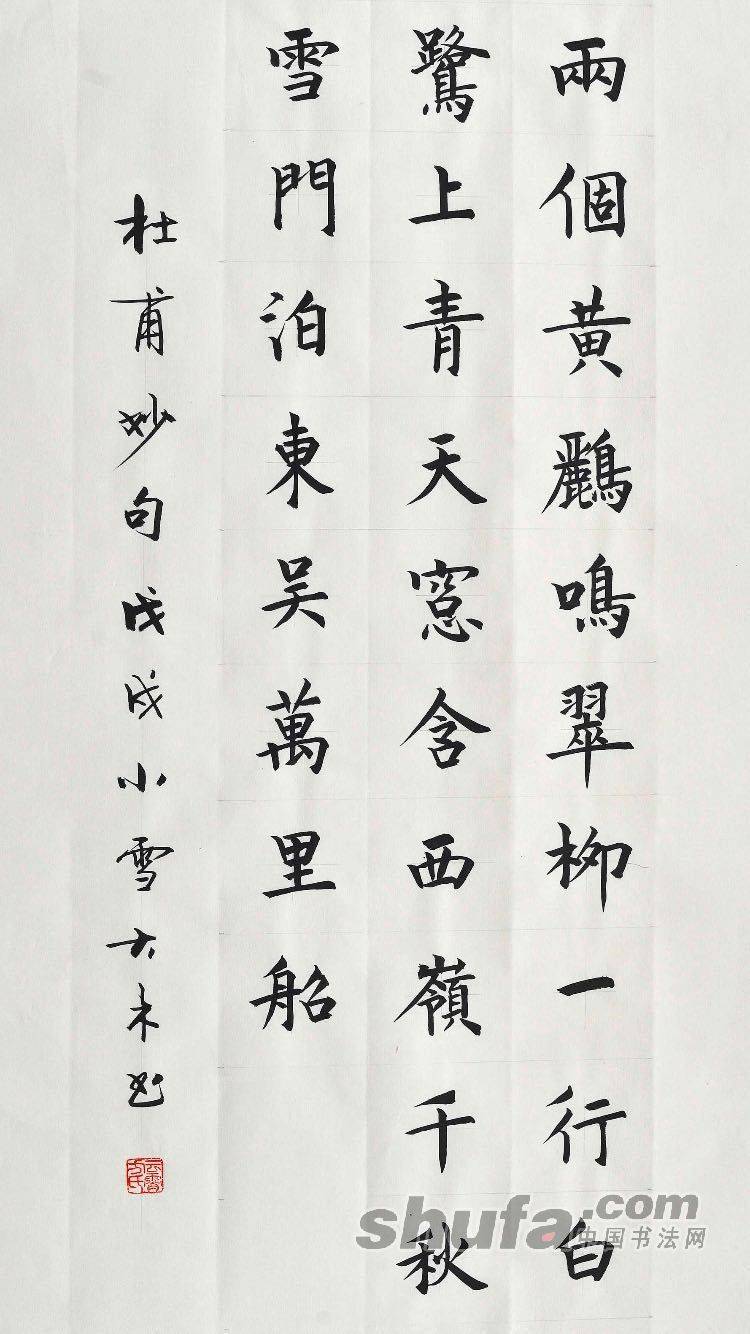 兩個黃鸝鳴翠柳一行白
鷺上青天窓含西嶺千秋
雪門泊東吴萬里船
杜甫妙句戊戌小雪大木書
shufa.com
中国书法网